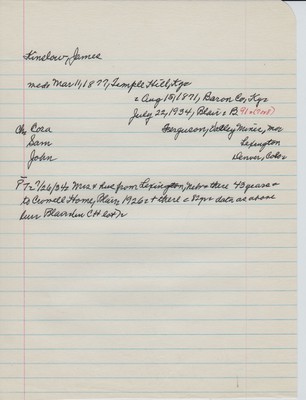 Kinslow, James
md= Mar 11, 1877, Temple Hill, Kyo
= Aug 15, 1871, Baron Co, Kyo
July 22, 1934, Blair = B
Ch Cora Ferguson, Valley Mines, Mo=
Sam Lexington
John Denver, Colo=
PT= 7/26/34= Mrs & hus from Lexington, Neb= there 43 years =
to Crowell Home, Blair, 1926= & there = 8 yrs = data as above
bur Blair in CH lot)=